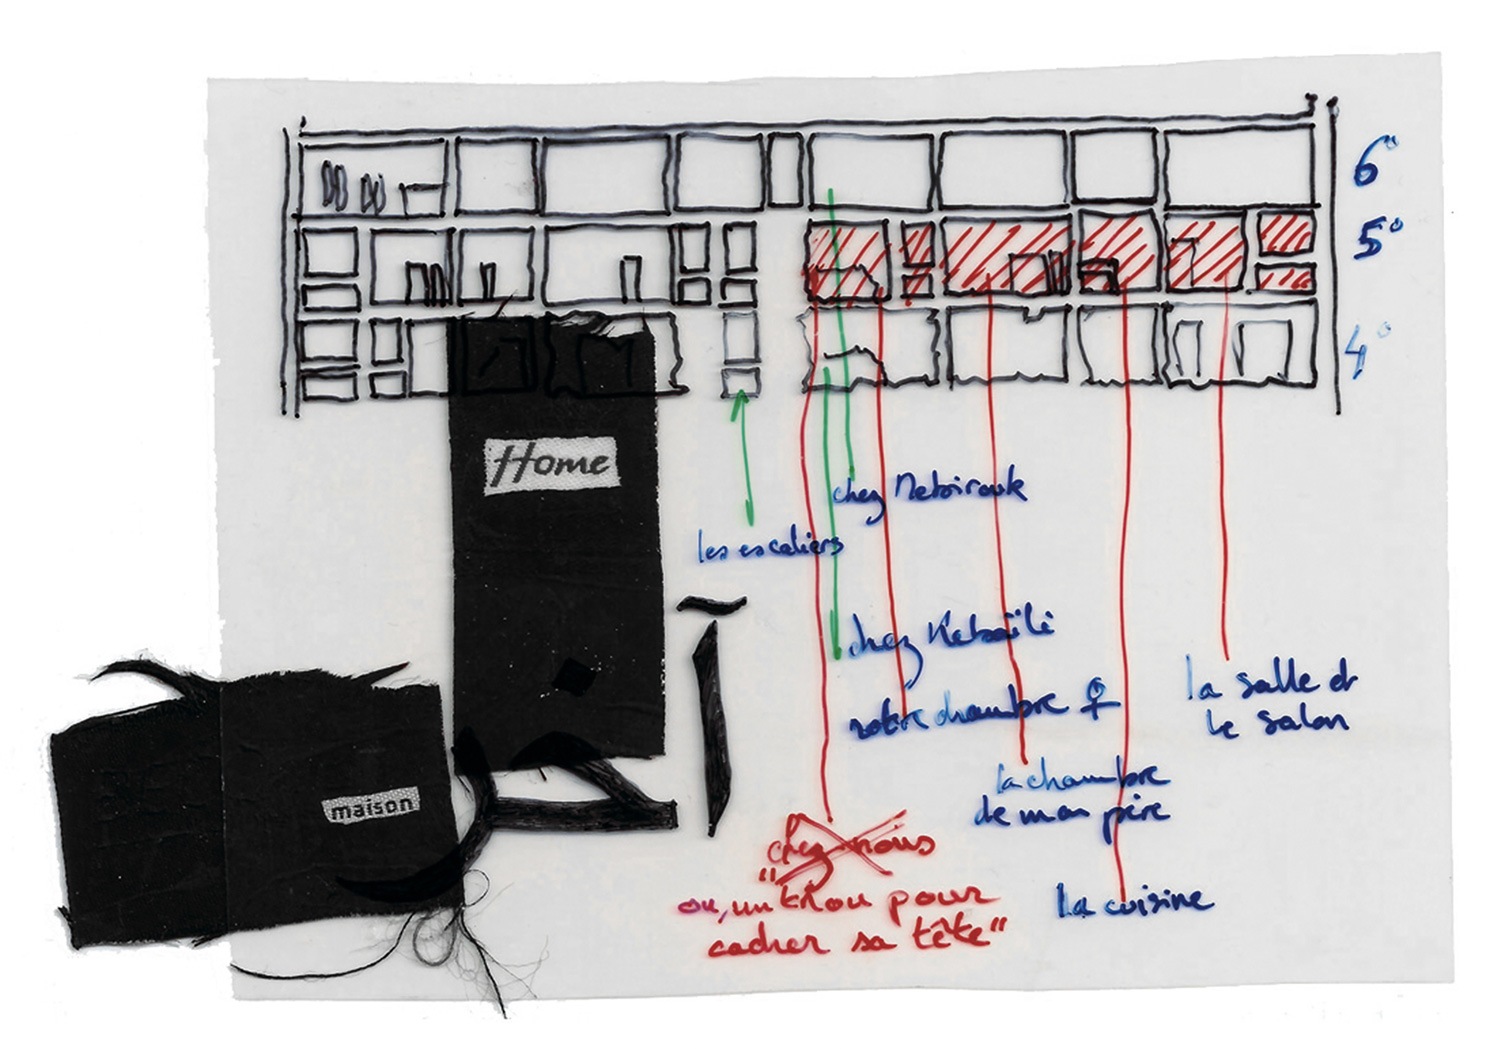 6°
5°
4°
Home
chez Mebirouk
les escaliers
chez Kebaïli
notre chambre ♀
la salle et
le salon
la chambre
de mon père
maison
chez nous
ou, "un trou pour
cacher sa tête"
la cuisine